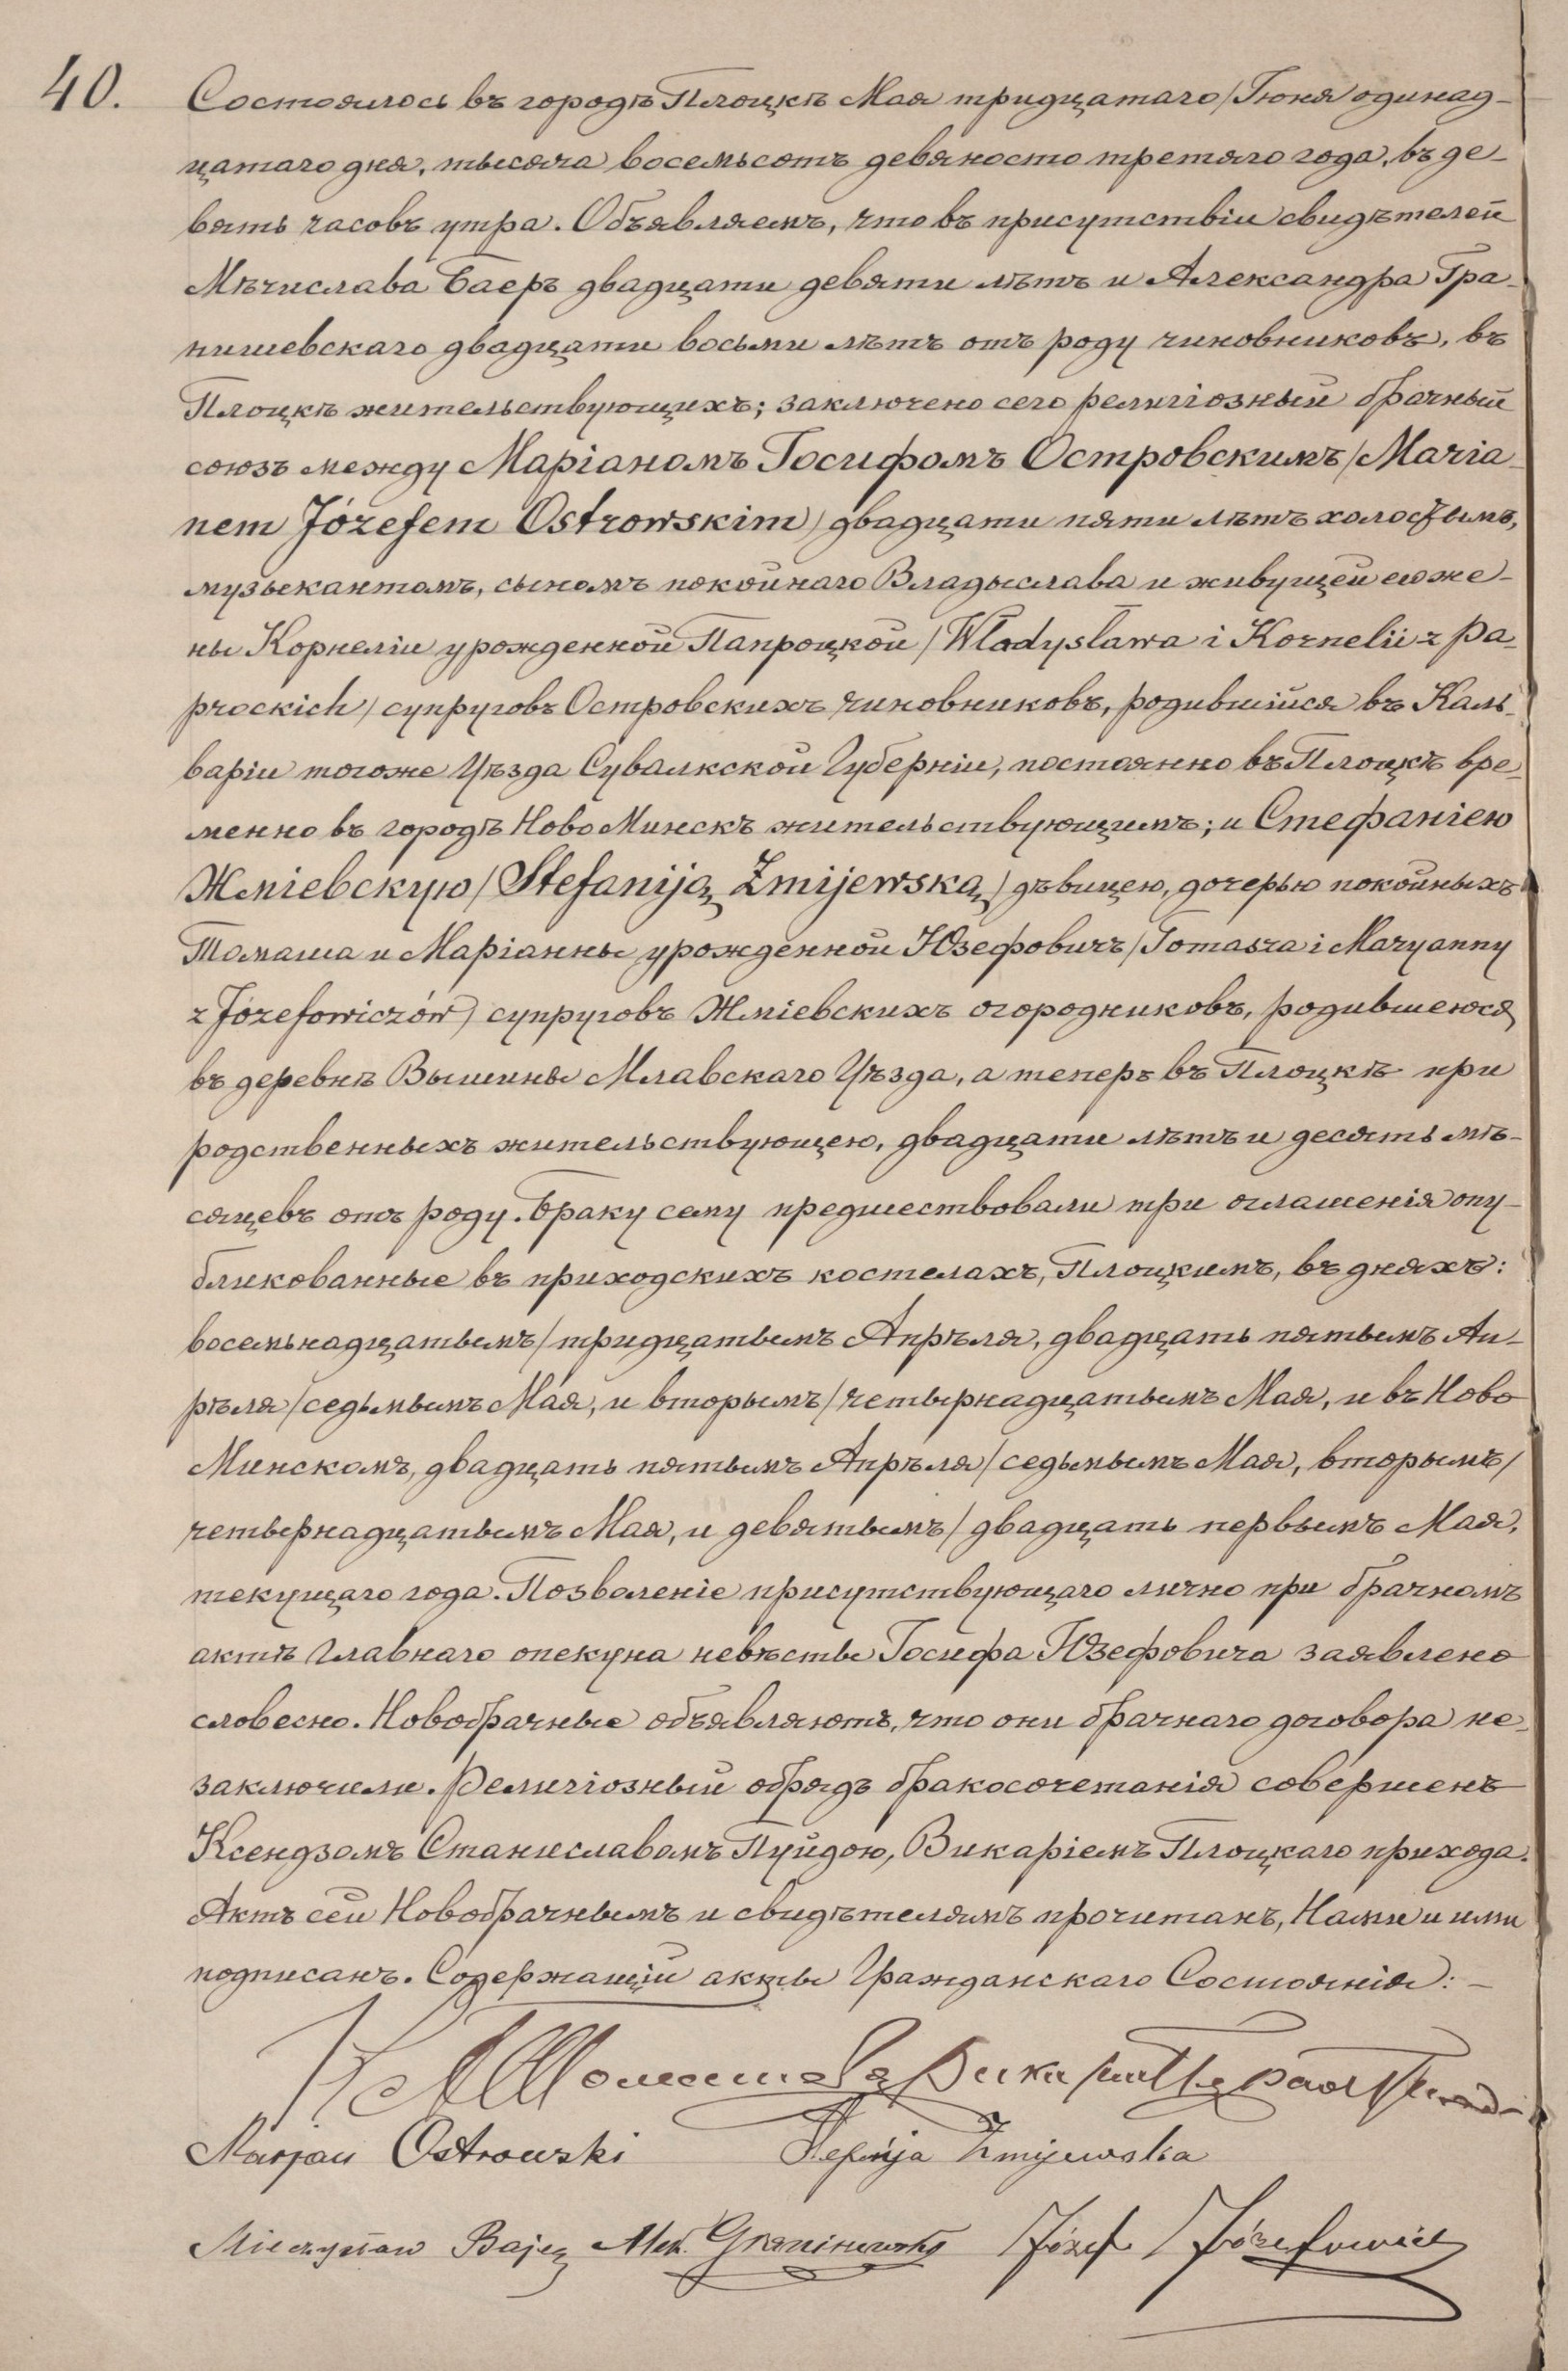 40. Состоялось въ городѣ Плоцкѣ Мая тридцатаго/Іюня одинад-
цатаго дня, тысяча восемьсотъ девяносто третяго года, въ де-
вять часовъ утра. Объявляемъ, что въ присутствіи свидѣтелей
Мѣчислава Баеръ двадцати девяти лѣтъ и Александра Гра-
нишевскаго двадцати восьми лѣтъ отъ роду чиновниковъ, въ
Плоцкѣ жительствующихъ; заключено сего религіозный брачный
союзъ между Маріаномъ Іосифомъ Островскимъ/Maria-
nem Józefem Ostrowskim/ двадцати пяти лѣтъ холостымъ,
музыкантомъ, сыномъ покойнаго Владыслава и живущей его же-
ны Корнеліи урожденной Папроцкой /Władysława i Kornelii z Pa-
prockich/ супруговъ Островскихъ чиновниковъ, родившійся въ Каль-
варіи тогоже Уѣзда Сувалкской Губерніи, постоянно въ Плоцкѣ вре-
менно въ городѣ Ново Минскъ жительствующимъ; и Стефаніею
Жміевскую/Stefaniją Żmijewską/ дѣвицею, дочерью покойныхъ
Томаша и Маріанны урожденной Юзефовичъ/Tomasza i Maryanny
z Józefowiczów/ супруговъ Жміевскихъ огородниковъ, родившеюся
въ деревнѣ Вышины Млавскаго Уѣзда, а теперъ въ Плоцкѣ при
родственныхъ жительствующею, двадцати лѣтъ и десять мѣ-
сяцевъ отъ роду. Браку сему предшествовали три оглашенія опу-
бликованные въ приходскихъ костелахъ, Плоцкимъ, въ дняхъ:
восемьнадцатымъ/тридцатымъ Апрѣля, двадцать пятымъ Ап-
рѣля/седьмымъ Мая, и вторымъ/четырнадцатымъ Мая, и въ Ново
Минскомъ, двадцать пятымъ Апрѣля/седьмымъ Мая, вторымъ/
четырнадцатымъ Мая, и девятымъ/двадцать первымъ Мая,
текущаго года. Позволеніе присутствующаго лично при брачномъ
актѣ Главнаго опекуна невѣсты Іосифа Юзефовича заявлено
словесно. Новобрачные объявляютъ, что они брачнаго договора не-
заключили. Религіозный обрядъ бракосочетанія совершенъ
Ксендзомъ Станиславомъ Пуйдою, Викаріемъ Плоцкаго прихода.
Актъ сей Новобрачнымъ и свидѣтелямъ прочитанъ, Нами и ими
подписанъ. Содержащій акты Гражданскаго Состоянія: -
Marjan Ostrowski Stefanja Żmijewska
Mieczysław Bajer Alek. Graniszewski Józef Józefowicz